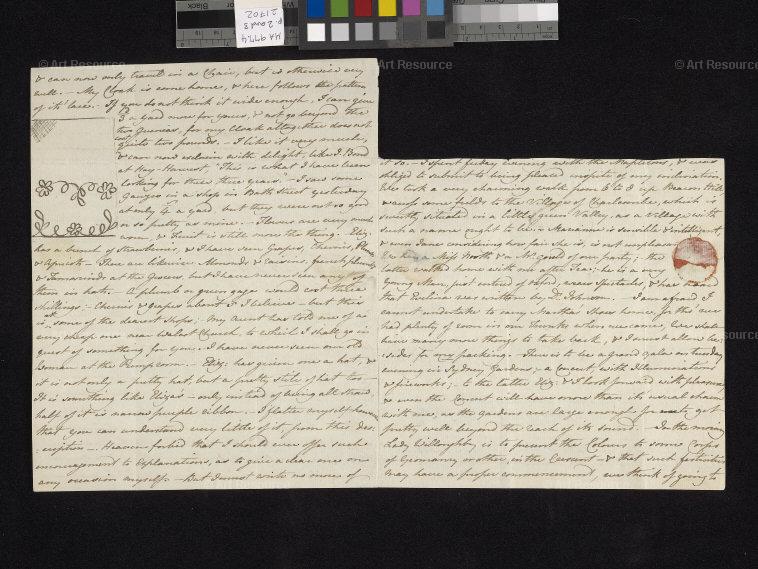 & can now only travel in a Chair, but is otherwise very
well. – My Cloak is come home, & here follows the pattern
of its' lace. – If you do not think it wide enough, I can give
3d a yard more for yours, & not go beyond the
two Guineas, for my Cloak altogether does not
cost quite two pounds. – I like it very much,
& can now exclaim with delight, like J. Bond
at Hay-Harvest, "This is what I have been
looking for these three years." – I saw some
Gauzes in a shop in Bath Street yesterday
at only 4s a yard, but they were not so good
or so pretty as mine. – Flowers are very much
worn, & Fruit is still more the thing. – Eliz:
has a bunch of Strawberries, & I have seen Grapes, Cherries, Plumbs
& Apricots – There are likewise Almonds & raisins, french plumbs
& Tamarinds at the Grocers, but I have never seen any of
them in hats. – A plumb or green gage would cost three
shillings; – Cherries & Grapes about 5 I believe – but this
is at some of the dearest Shops; – My Aunt has told me of a
very cheap one near Walcot Church, to which I shall go in
quest of something for You. – I have never seen an old
Woman at the Pump room. – Eliz: has given me a hat, &
it is not only a pretty hat, but a pretty stile of hat too –
It is something like Eliza's – only instead of being all straw,
half of it is narrow purple ribbon. – I flatter myself however
that you can understand very little of it, from this des:
:cription –. Heaven forbid that I should ever offer such
encouragement to Explanations, as to give a clear one on
any occasion myself. – But I must write no more of
it so. – I spent friday evening with the Mapletons, & was
obliged to submit to being pleased inspite of my inclination.
We took a very charming walk from 6 to 8 up Beacon Hill,
& across some fields to the Village of Charlcombe, which is
sweetly situated in a little green Valley, as a Village with
such a name ought to be. – Marianne is sensible & intelligent,
& even Jane considering how fair she is, is not unpleasant.
We had a Miss North & a Mr. Gould of our party; – the
latter walked home with me after Tea; – he is a very
Young Man, just entered of Oxford, wears Spectacles, & has heard
that Evelina was written by Dr. Johnson. – I am afraid I
cannot undertake to carry Martha's Shoes home, for tho' we
had plenty of room in our Trunks when we came, We shall
have many more things to take back, & I must allow be:
:sides for my packing. – There is to be a grand gala on tuesday
evening in Sydney Gardens; – a Concert, with Illuminations
& fireworks; – to the latter Eliz: & I look forward with pleasure,
& even the Concert will have more than its' usual charm
with me, as the gardens are large enough for me to get
pretty well beyond the reach of its sound. – In the morning
Lady Willoughby is to present the Colours to some Corps
of Yeomanry or other, in the Crescent – & that such festivities
may have a proper commencement, we think of going to
© Art Resource
Art Resource
© Art Resource
MA 977.4
p. 2 and 3
21702
Black